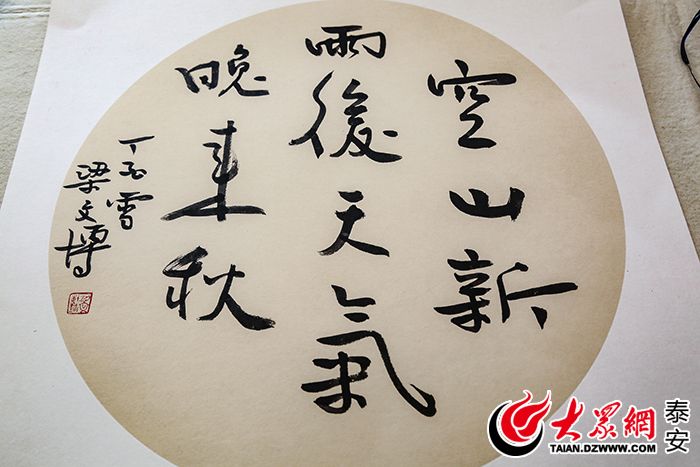 空山新
雨後天氣
晚来秋
丁酉雪
梁文博
大眾網
泰安
TAIAN.DZWWW.COM